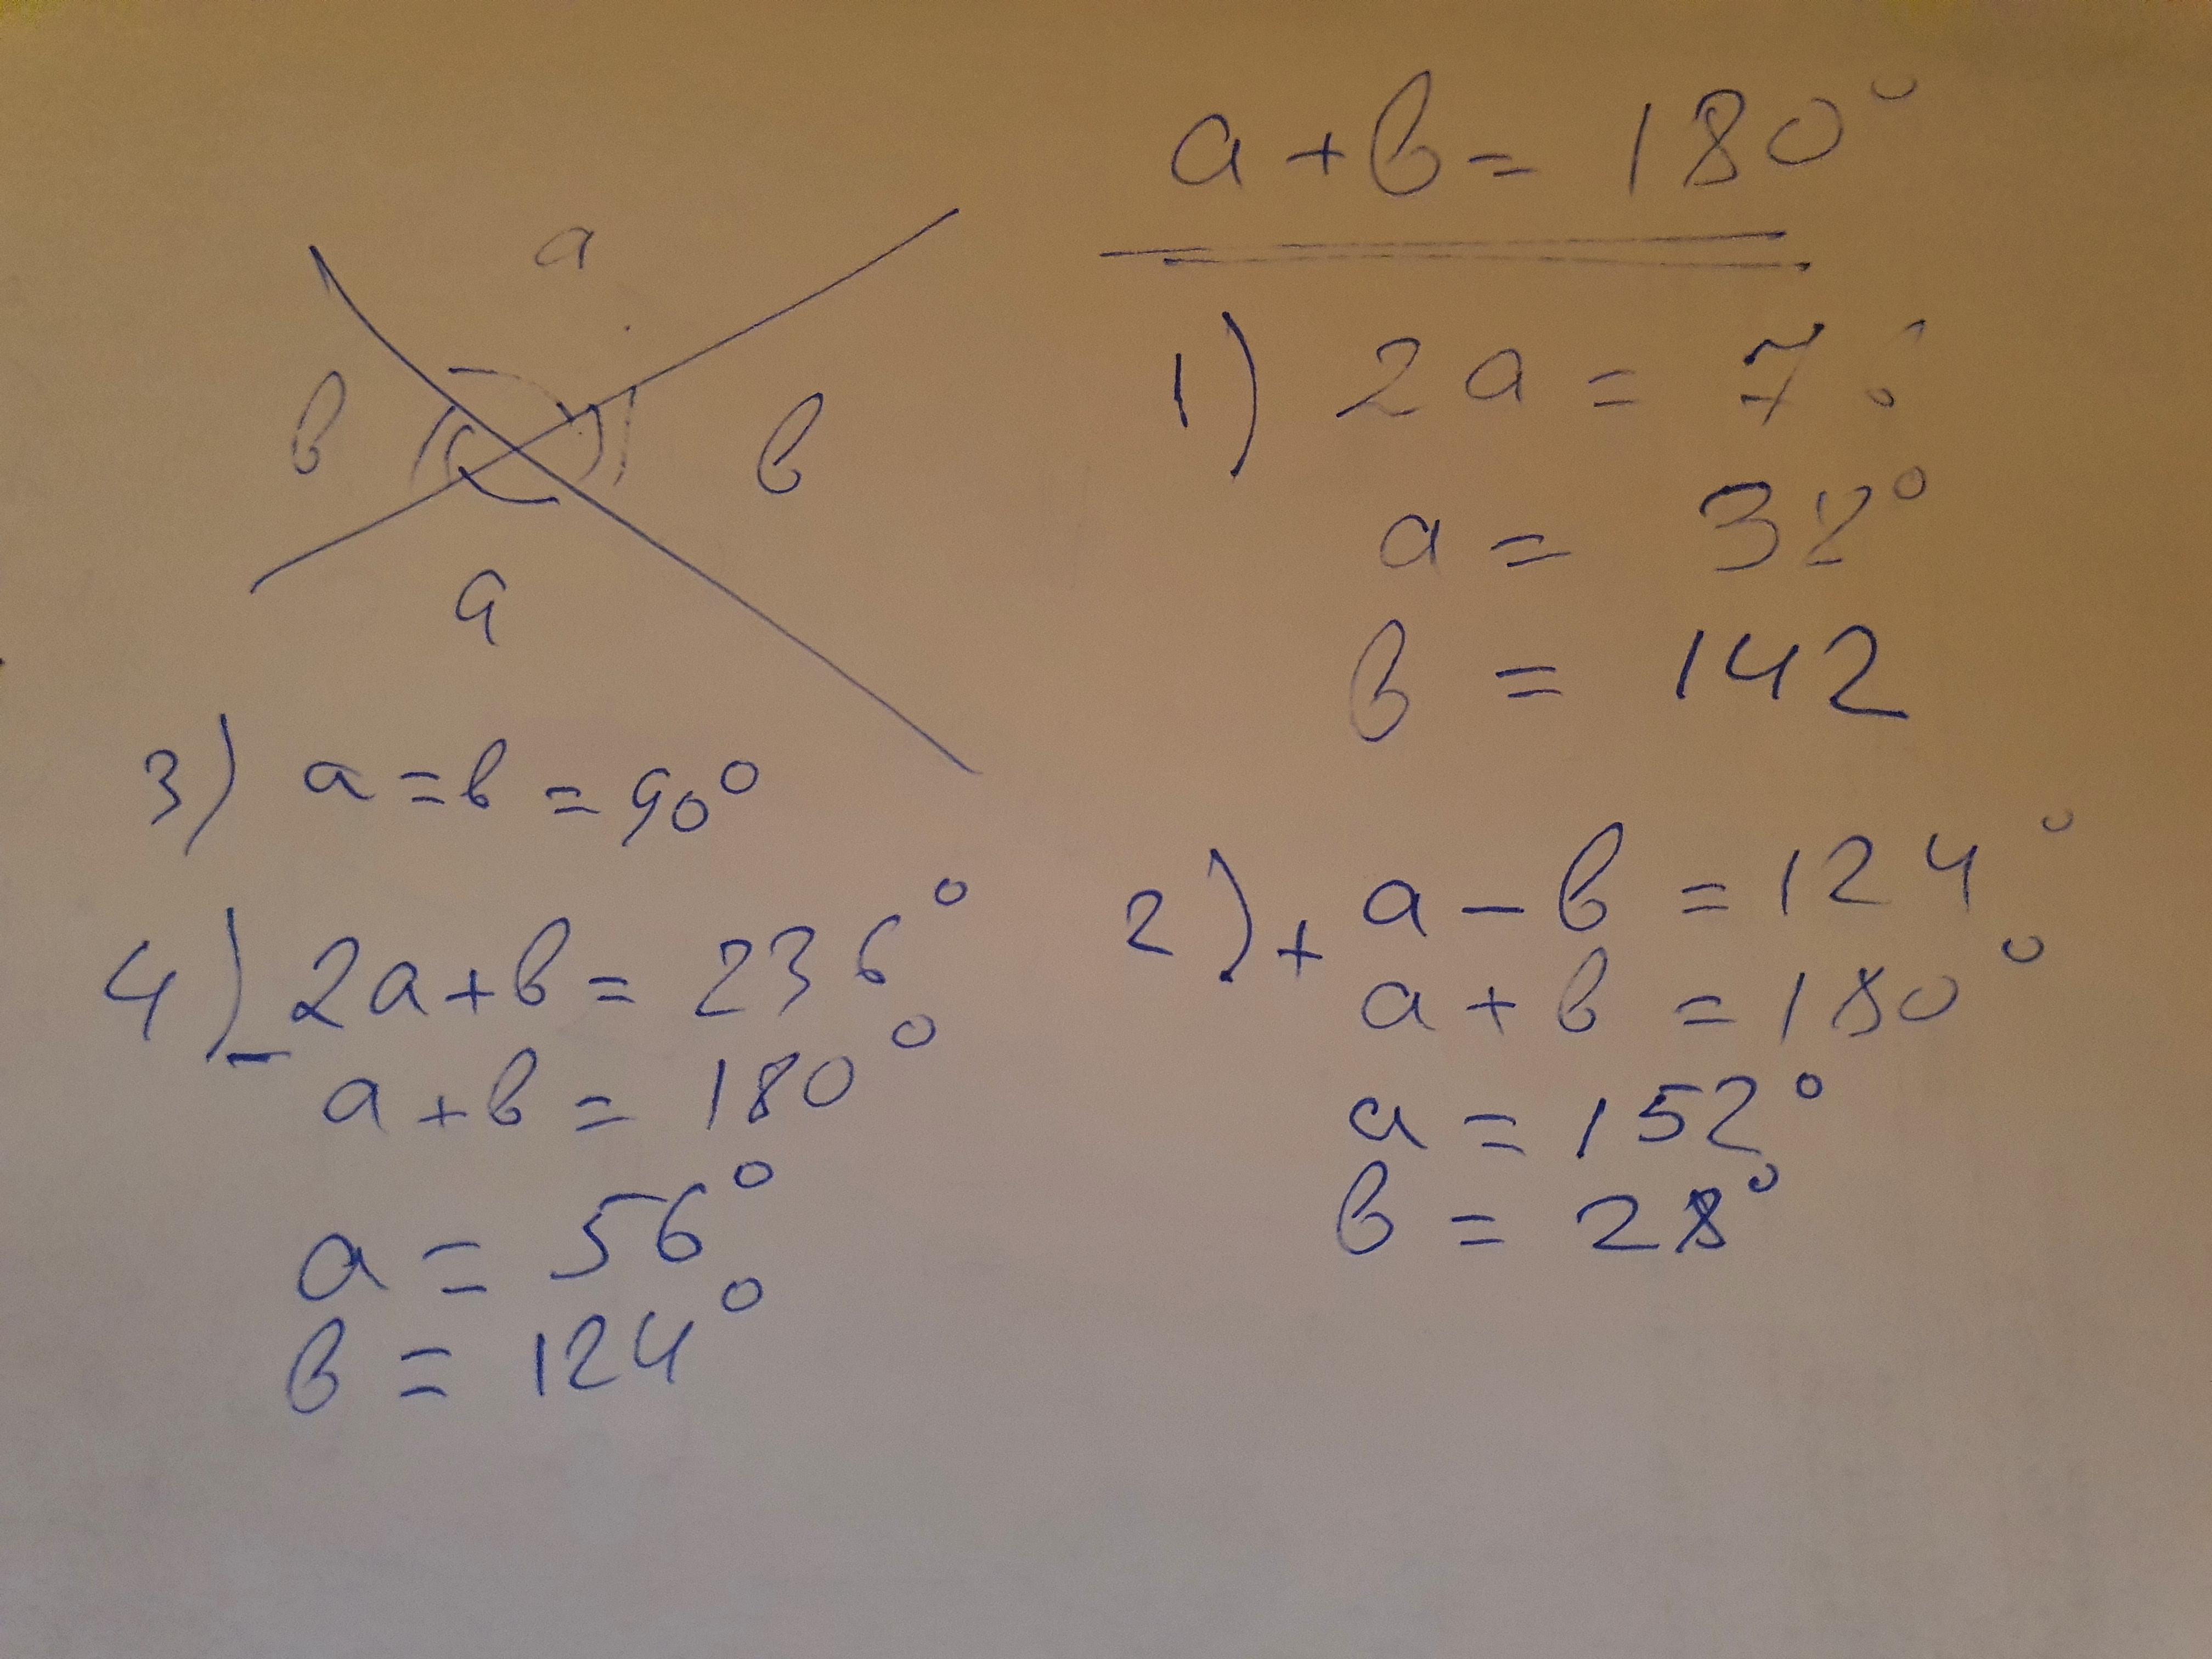 a + в = 180°
a
в
в
a
1) 2a = 7
a = 38°
в = 142
3) a = в = 90°
2) + a - в = 124°
a + в = 180°
a = 152°
в = 28°
4) - 2a + в = 236°
a + в = 180°
a = 56°
в = 124°